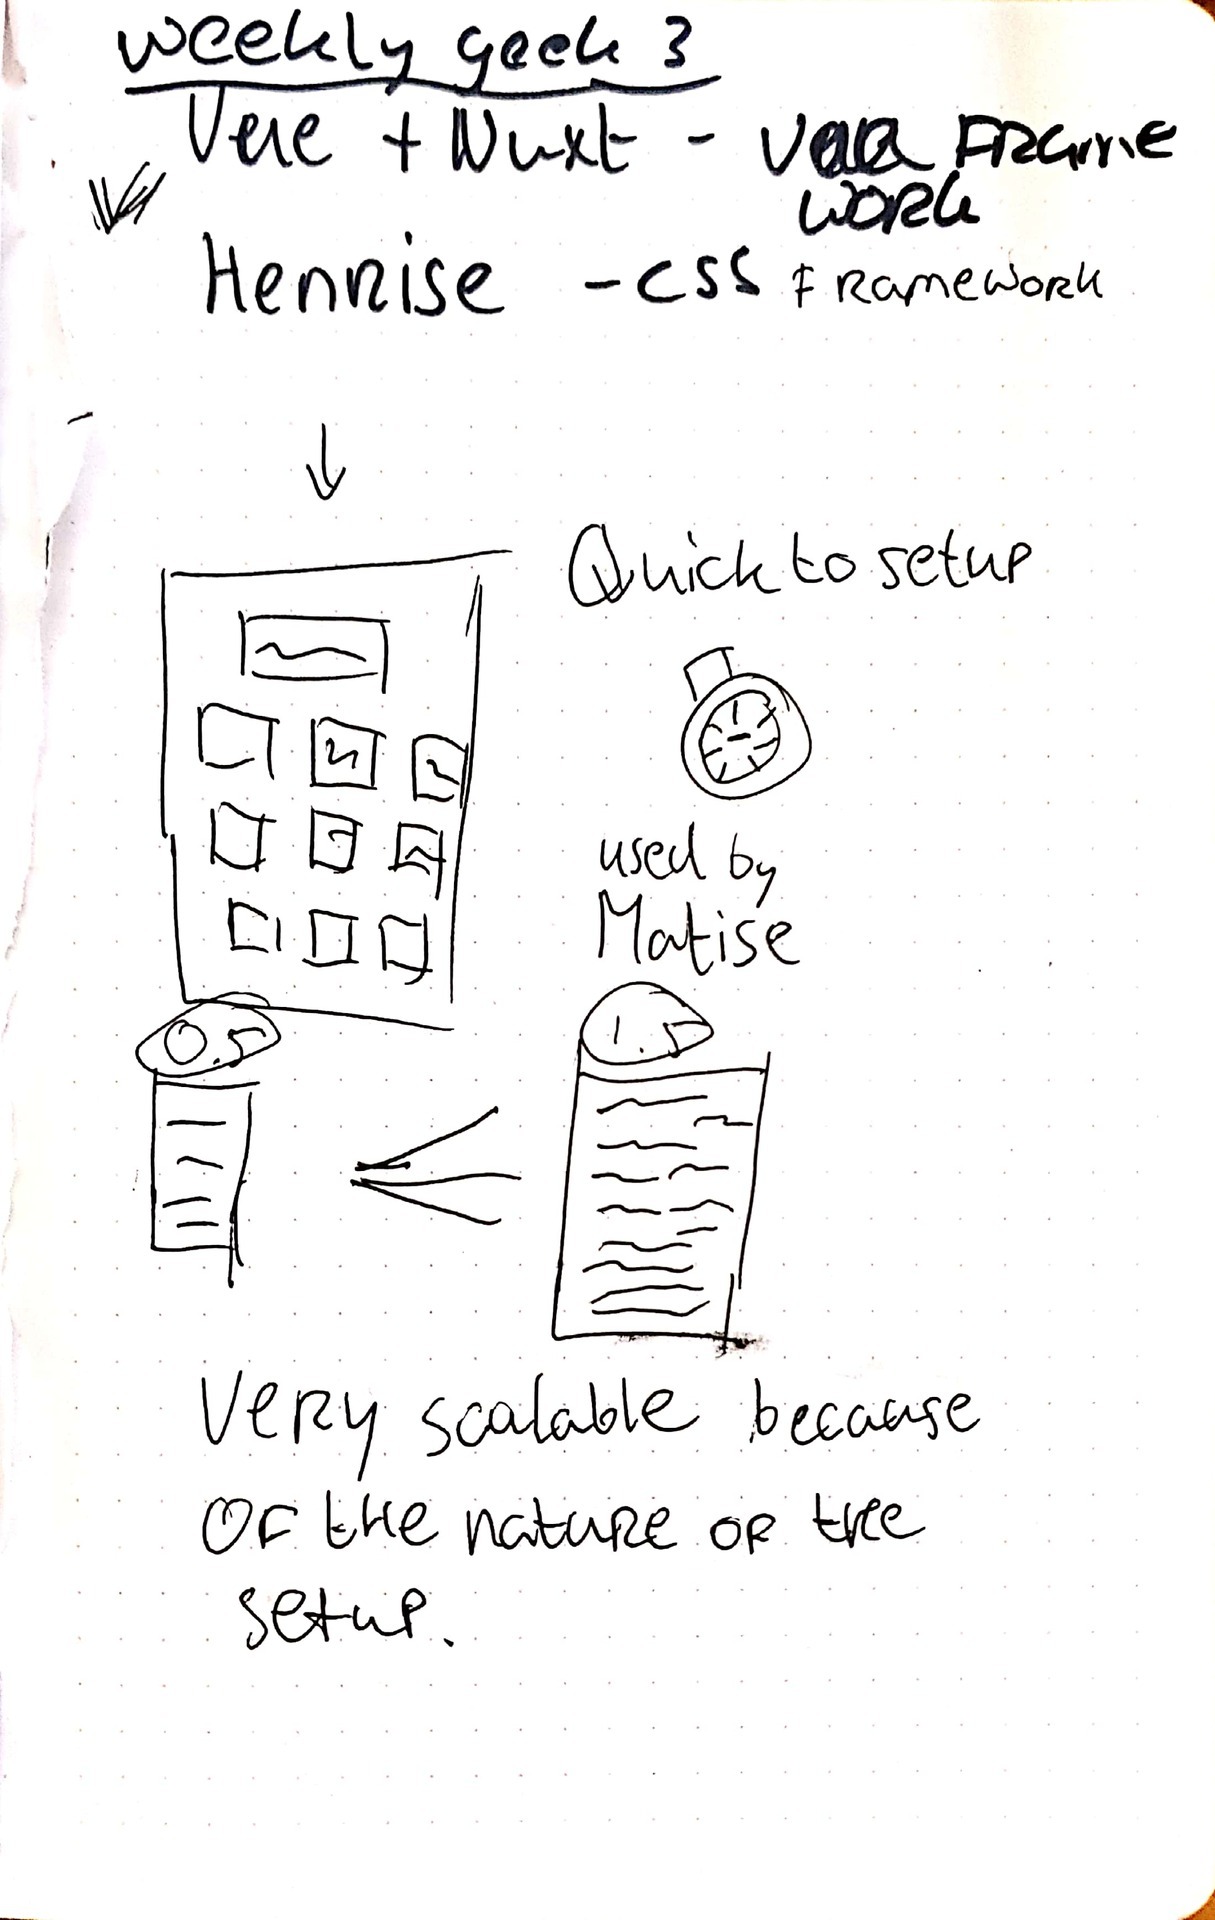 weekly geek 3
Vue + Nuxt - FRame
WORK
Henrise - CSS FRamework
Quick to setup
used by
Matise
0.5
1.5
VeRy scalable because
OF tHe natuRe OF the
setup.